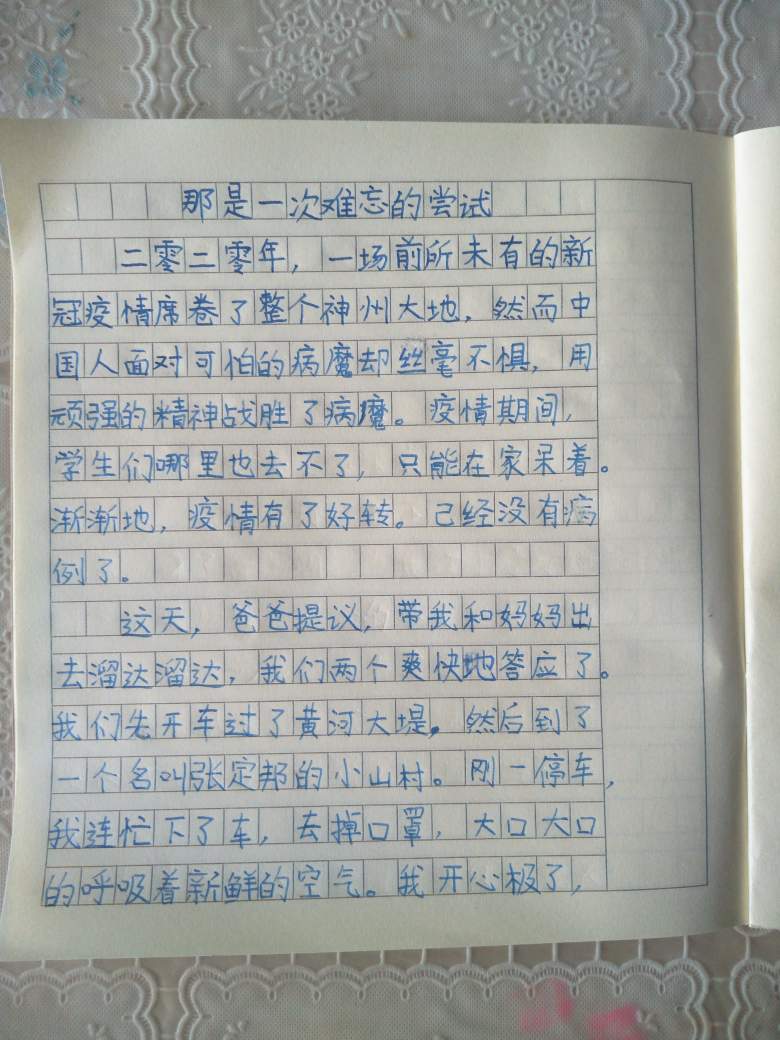 那是一次难忘的尝试
二零二零年，一场前所未有的新
冠疫情席卷了整个神州大地，然而中
国人面对可怕的病魔却丝毫不惧，用
顽强的精神战胜了病魔。疫情期间，
学生们哪里也去不了，只能在家呆着。
渐渐地，疫情有了好转。己经没有病
例了。
这天，爸爸提议，带我和妈妈出
去溜达溜达，我们两个爽快地答应了。
我们先开车过了黄河大堤。然后到了
一个名叫张定邦的小山村。刚一停车，
我连忙下了车，去掉口罩，大口大口
的呼吸着新鲜的空气。我开心极了，